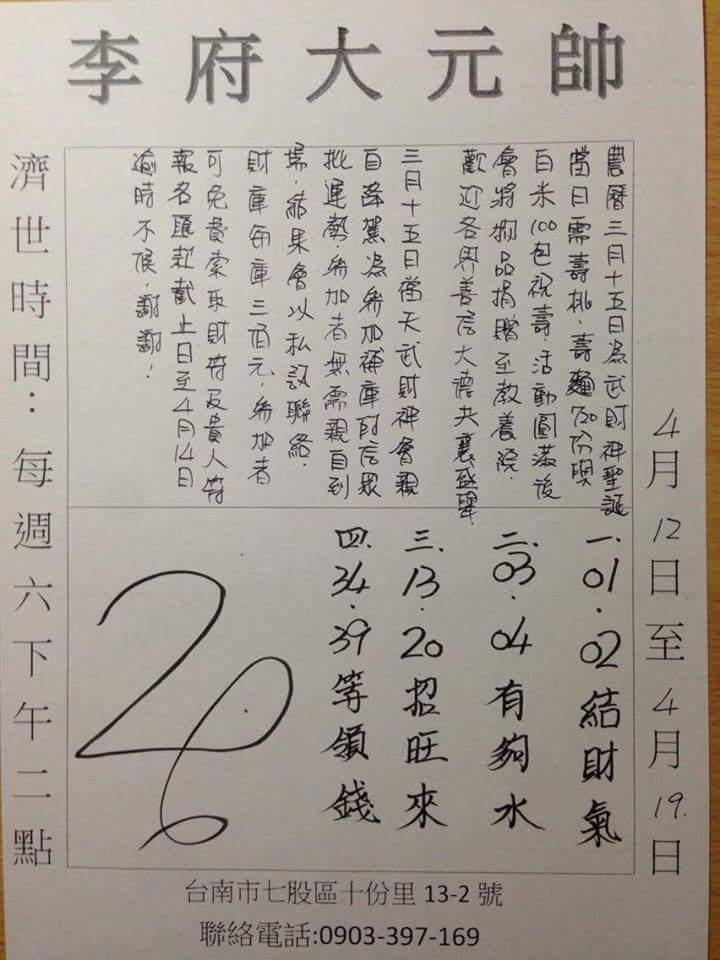 李府大元帥
4月12日至4月19.日
農曆三月十五日為武財神聖誕
當日需壽桃、壽麵720份與
白米100包祝壽、活動圓滿後
會將物品捐贈至教養院.
歡迎各界善信大德共襄盛舉.
三月十五日當天武財神會親
自降駕為參加補庫的信眾
批運勢,參加者無需親自到
場,結果會以私訊聯絡.
財庫每庫三佰元,參加者
可免費索取財符及貴人符
報名匯款截止日至4月14日
逾時不候,謝謝!
一.01.02結財氣
二.03.04有夠水
三.13.20招旺來
四.34.39等領錢
26
濟世時間:每週六下午二點
台南市七股區十份里 13-2 號
聯絡電話:0903-397-169